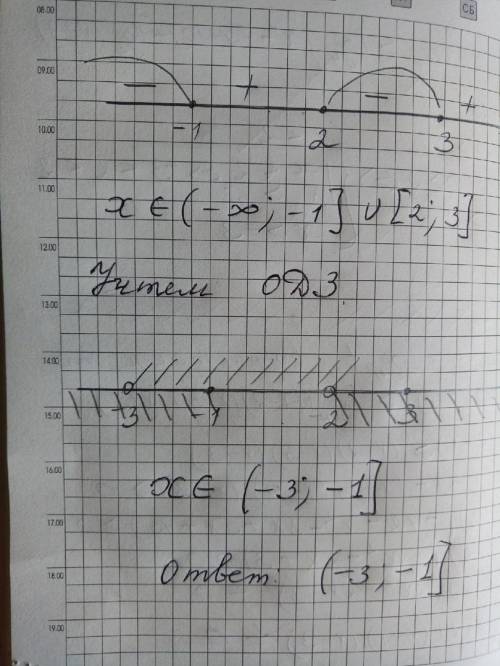 СБ
08.00
09.00
− + − +
10.00
-1 2 3
11.00
x ∈ (-∞; -1] ∪ [2; 3]
12.00
Учтем ОДЗ
13.00
14.00
15.00
-3 -1 2 3
16.00
x ∈ (-3; -1]
17.00
Ответ: (-3; -1]
18.00
19.00